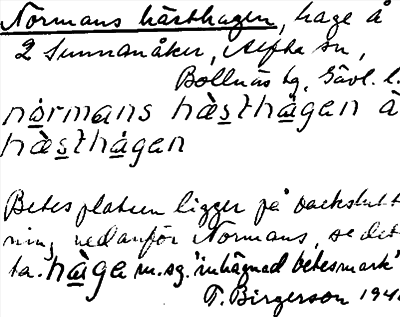 Normans hästhagen, hage å
2 Sunnanåker, Alfta sn,
Bollnäs tg, Gävl. l.
nòrmans hàsthàgen à
hàsthàgen
Betesplatsen ligger på backslutt
ning nedanför Normans, se det
ta. hàge m.sg. 'inhägnad betesmark'
T. Birgerson 194